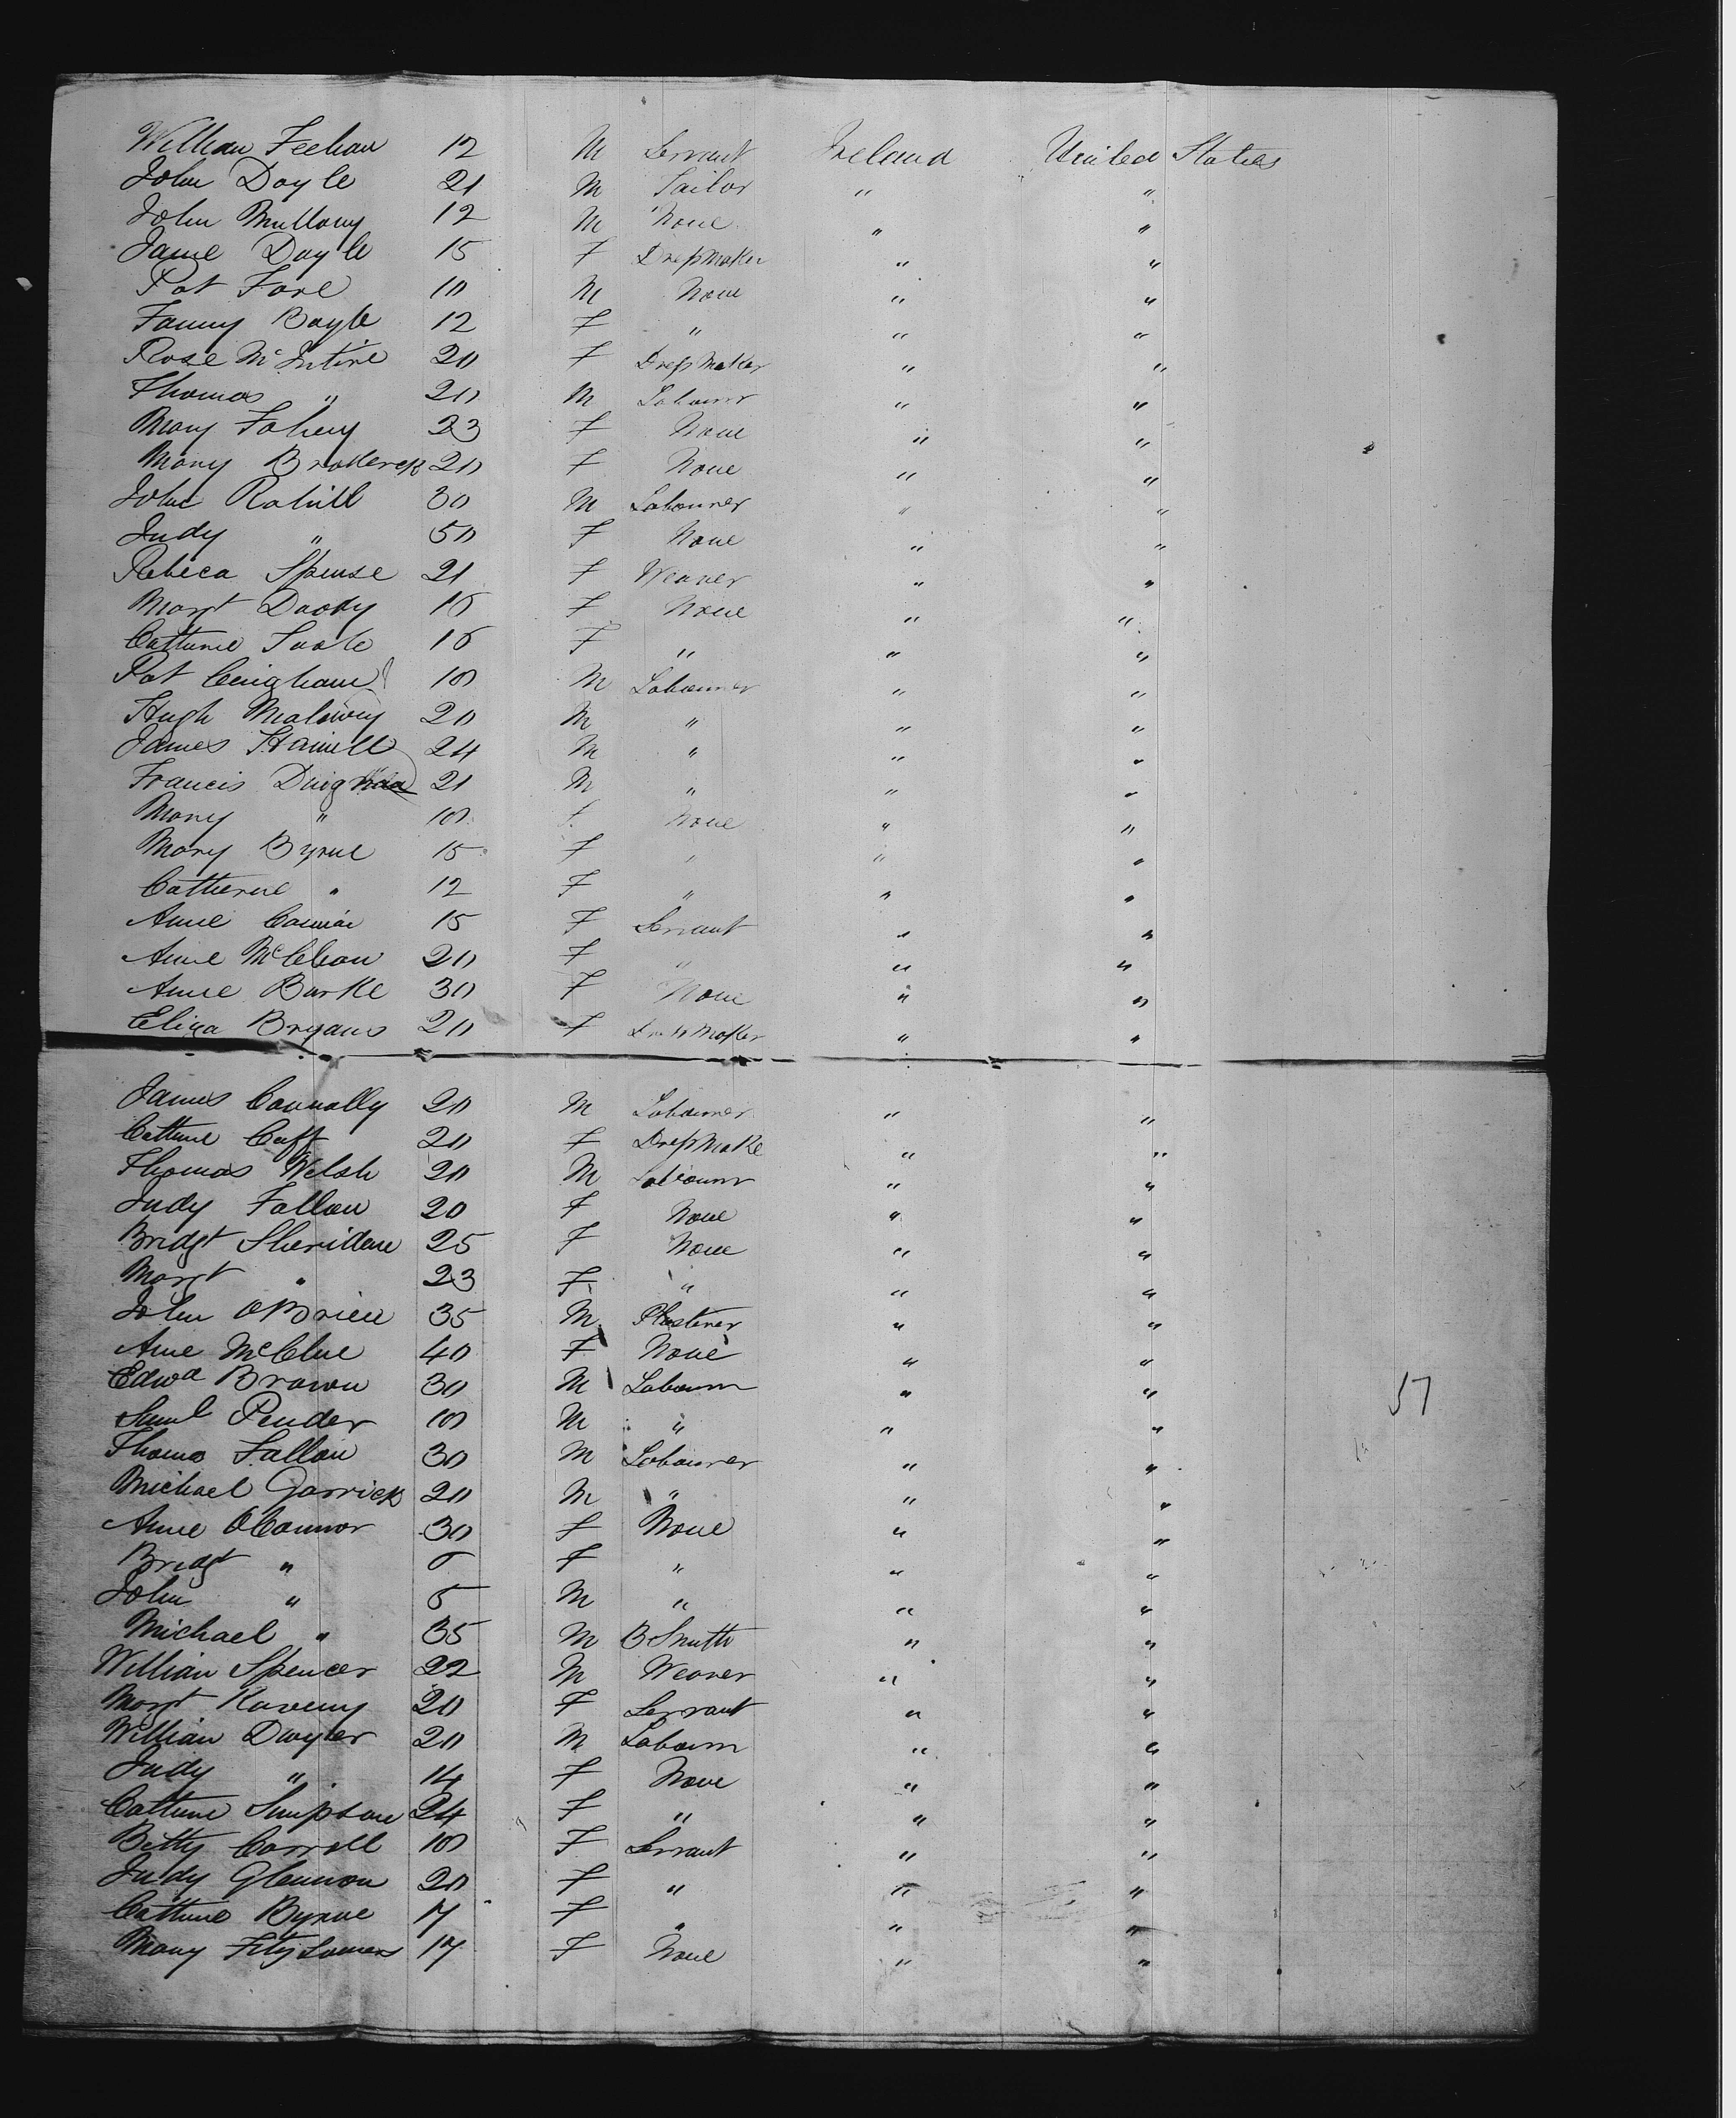 William Feehan 12 M Servant Ireland United States
John Doyle 21 M Tailor " "
John Mullany 12 M None " "
Jane Doyle 15 F Dressmaker " "
Pat Fore 10 M None " "
Fanny Boyle 12 F " " "
Rose McIntire 20 F Dress Maker " "
Thomas " 20 M Labourer " "
Mary Fahey 23 F None " "
Mary Broderick 20 F None " "
John Rahill 30 M Labourer " "
Judy " 50 F None " "
Rebeca Spense 21 F Weaver " "
Margt Doody 16 F None " "
Catherine 16 F " " "
Pat 10 M Labourer " "
Hugh 20 M " " "
James 24 M " " "
Francis 21 M " " "
Mary " 10 F None " "
Mary Byrne 15 F " " "
Catherine " 12 F " " "
Anne 15 F Servant " "
Anne McClean 20 F " " "
Anne Burke 30 F None " "
Eliza Bryans 20 F Dress Maker " "
James Connolly 20 M Labourer " "
Catherine Cuff 20 F Dressmake " "
Thomas Welsh 20 M Labourer " "
Judy Fallon 20 F None " "
Bridgt Sheridan 25 F None " "
Margt " 23 F " " "
John OBrien 35 M Plasterer " "
Anne McClue 40 F None " "
Edwd Brown 30 M Labourer " "
Saml Pender 10 M " " "
Thomas Fallon 30 M Labourer " "
Michael Garrick 20 M " " "
Anne OConnor 30 F None " "
Bridgt " 6 F " " "
John " 5 M " " "
Michael " 35 M B Smith " "
William Spencer 22 M Weaver " "
Margt Kaveny 20 F Servant " "
William Dwyer 20 M Labourer " "
Judy " 14 F None " "
Catherine Simpson 24 F " " "
Betty Carroll 10 F Servant " "
Judy Glennon 20 F " " "
Catherine Byrne 17 F " " "
Mary Fitzsomers 17 F None " "
57